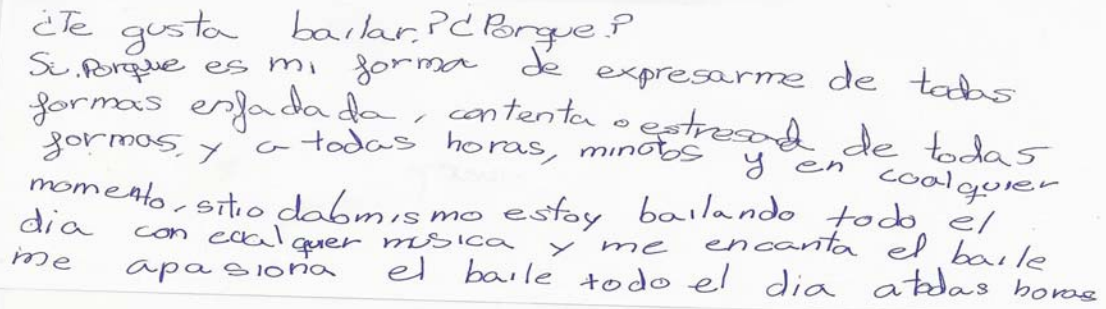 ¿Te gusta bailar.?¿Porque.?
Si. Porque es mi forma de expresarme de todas
formas enfadada, contenta o estresad de todas
formas, y a todas horas, minutos y en coalquier
momento, sitio dabmismo estoy bailando todo el
dia con ecualquer musica y me encanta el baile
me apasiona el baile todo el dia atodas horas